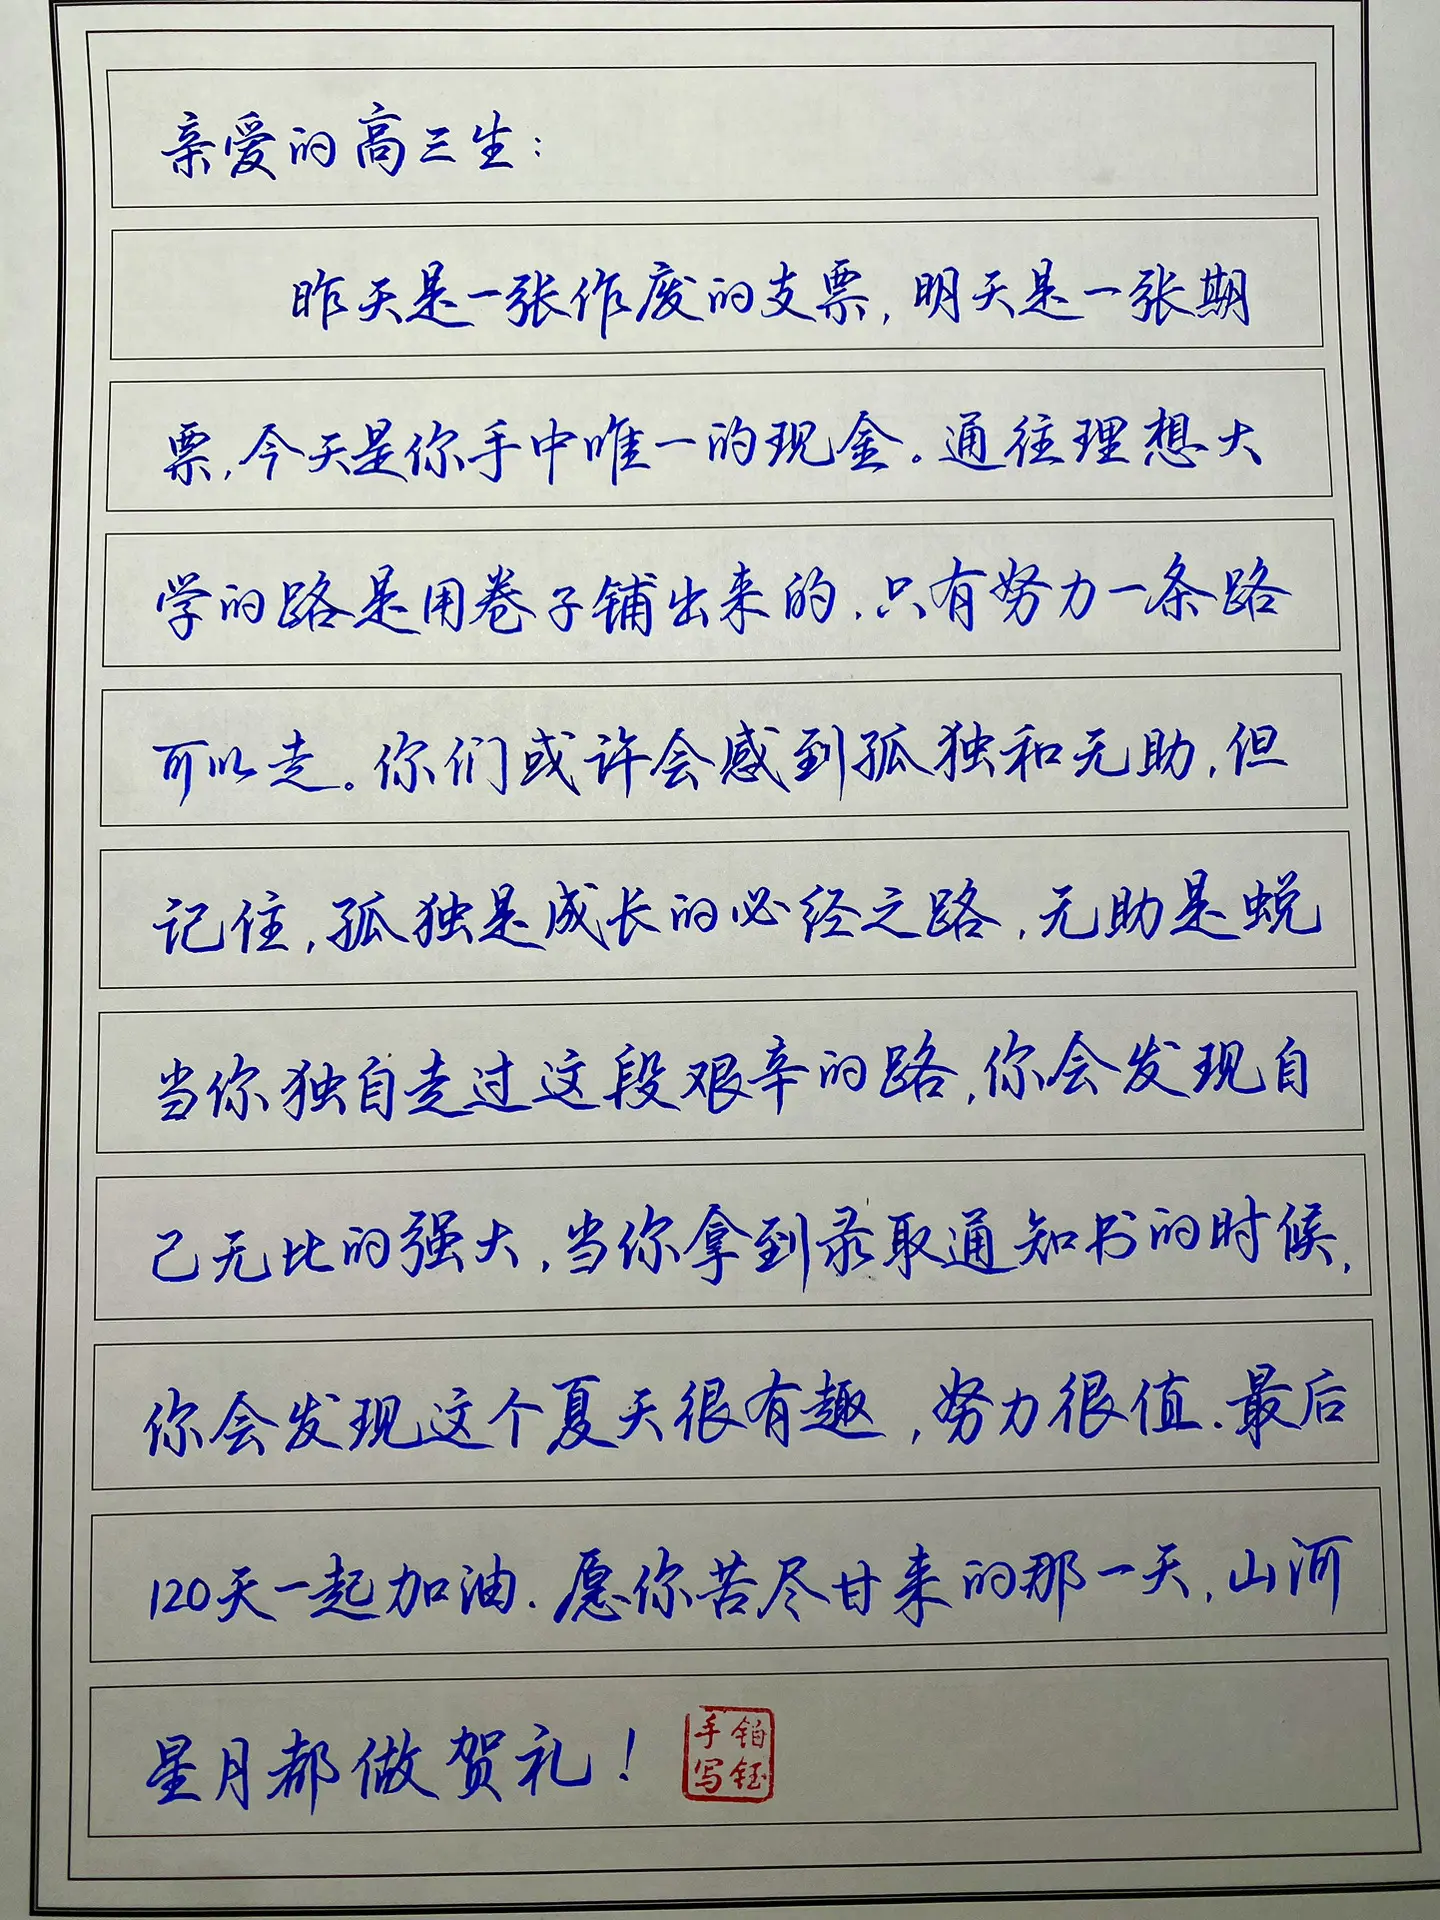 亲爱的高三生:
昨天是一张作废的支票,明天是一张期
票,今天是你手中唯一的现金。通往理想大
学的路是用卷子铺出来的,只有努力一条路
可以走。你们或许会感到孤独和无助,但
记住,孤独是成长的必经之路,无助是蜕
当你独自走过这段艰辛的路,你会发现自
己无比的强大,当你拿到录取通知书的时候,
你会发现这个夏天很有趣,努力很值.最后
120天一起加油.愿你苦尽甘来的那一天,山河
星月都做贺礼!
铂钰
手写